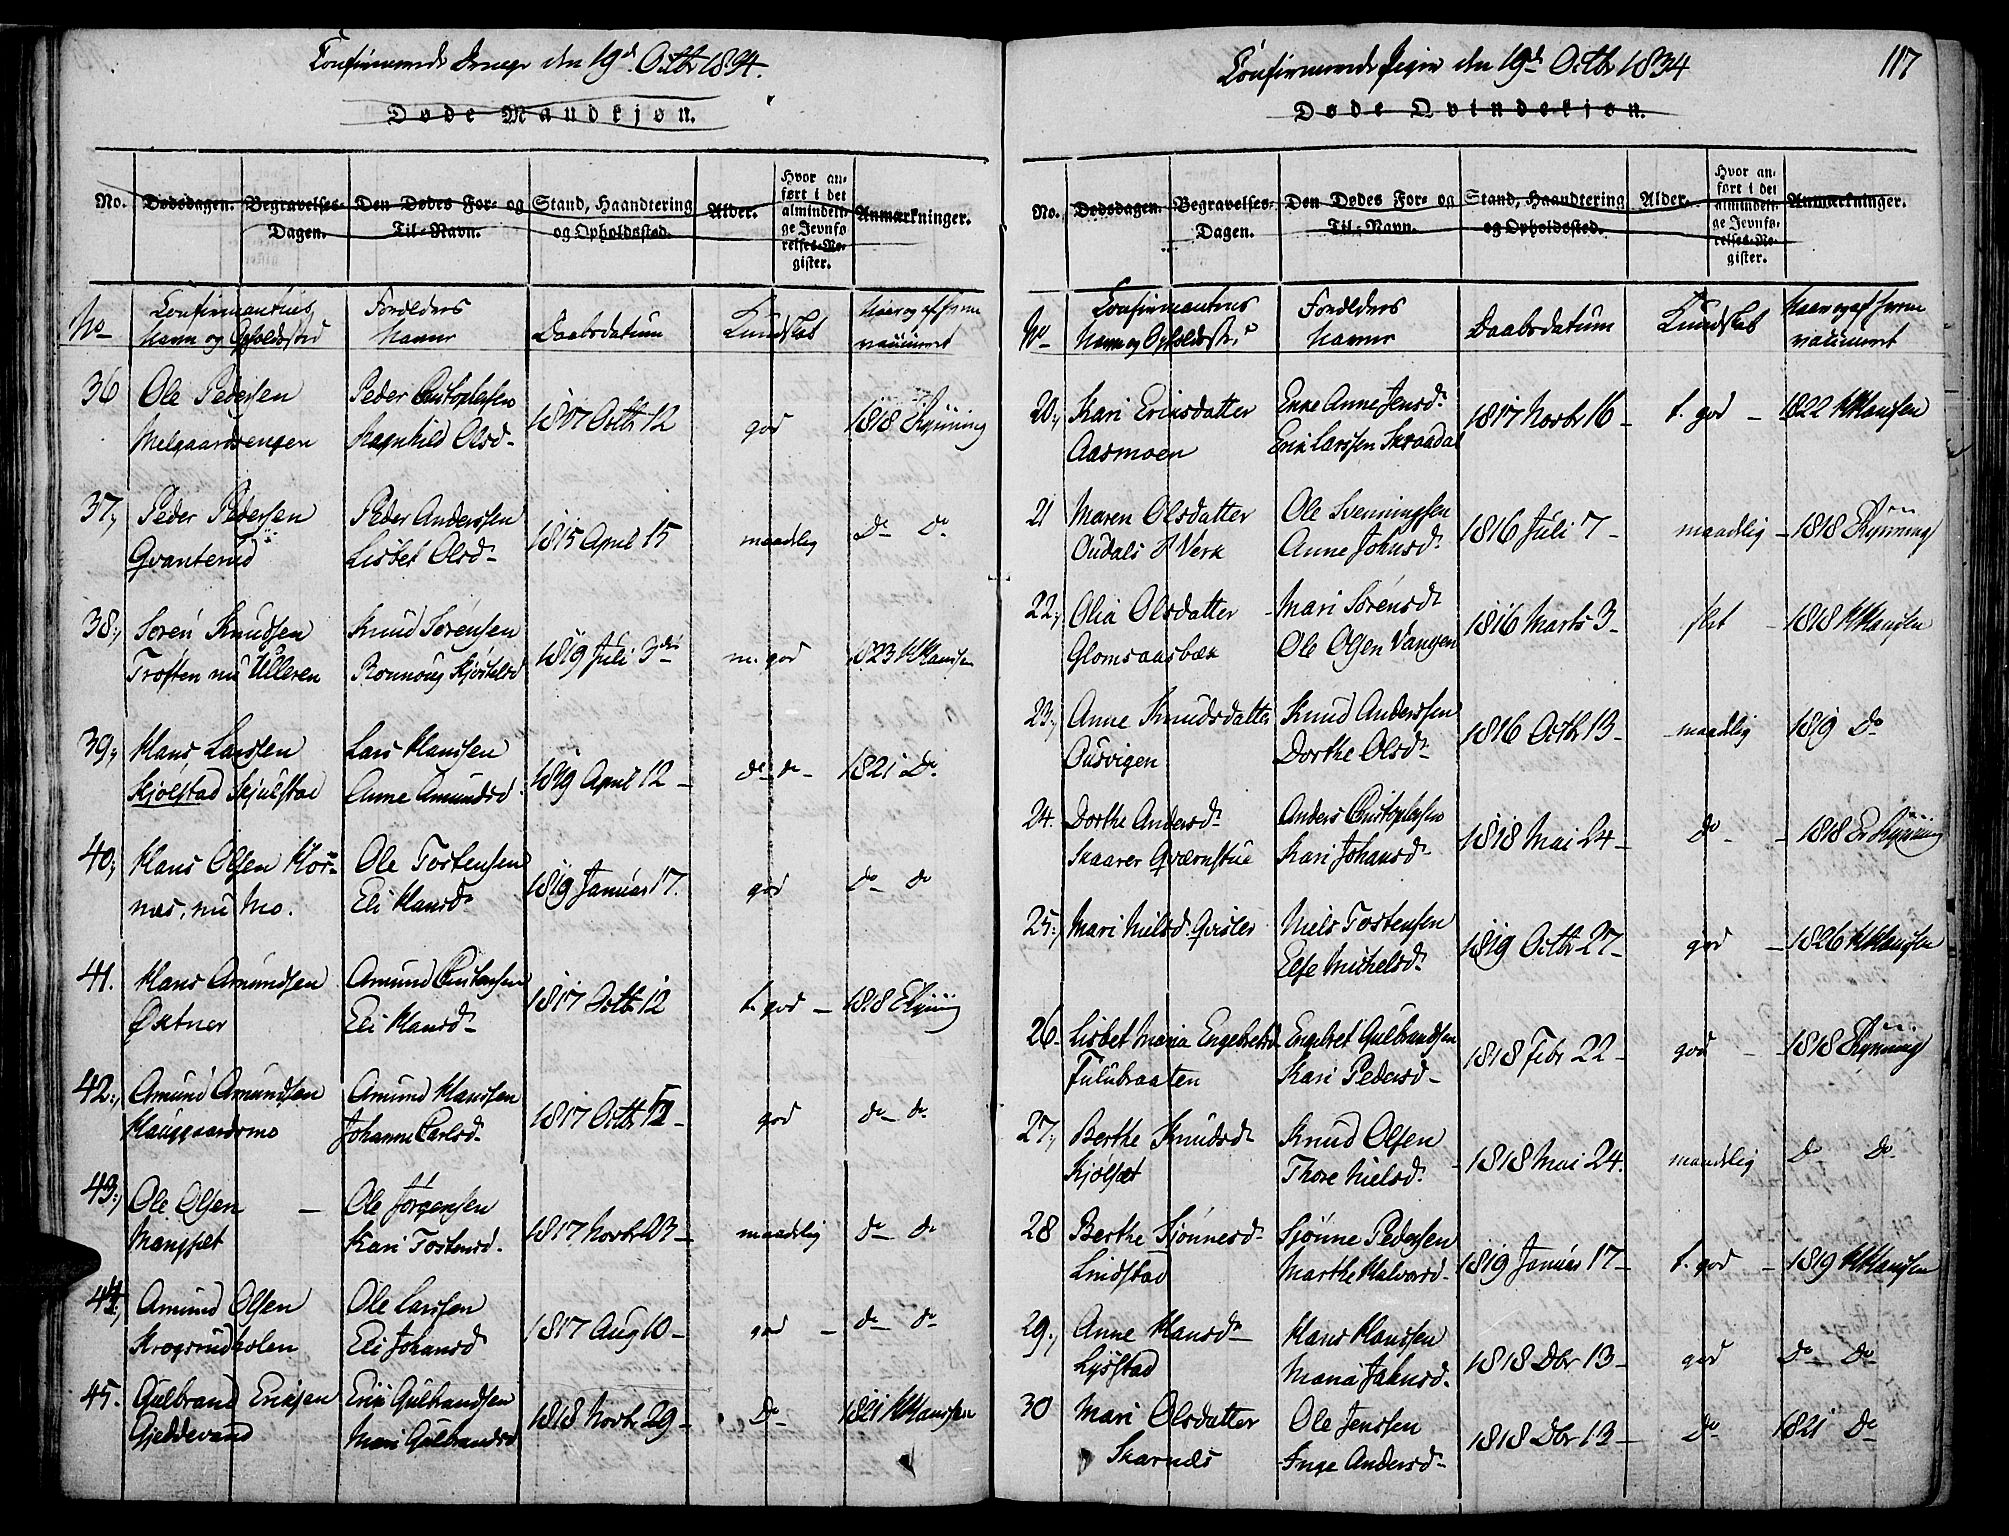 Confirmerede Drenge den 19d Octbr 1834.
Døde Mandkjøn.
No. Dødsdagen. Begravelses-Dagen. Den Dødes For- og Til-Navn. Stand, Haandtering og Opholdssted. Alder. Hvor anført i det almindelige Jevnførelses-Register. Anmærkninger.
No Confirmanternes Navn og Opholdssted Forældres Navne Daabsdatum Kundskab Naar og af hvem vaccineret
36 Ole Pedersen Peder Christophersen 1817 Octbr 12 god 1818 Rynning
Melgaardsengen Ragnhild Olsd.
37, Peder Pedersen Peder Anderssen 1815 April 15 maadelig Do Do
Qvanterud Lisbet Olsd.
38, Soren Knudsen Knud Sørensen 1819 Juli 3 m. god 1823 K Hanssen
Troften nu Ulleren Ronnoug Kjøstelsd
39, Hans Larssen Lars Hanssen 1819 April 12 do do 1821 Do
Skjølstad Skjulstad Anne Amundsd.
40, Hans Olsen Hor- Ole Tostensen 1819 Januar 17. god do do
nes, nu Mo. Eli Hansd.
41. Hans Amundsen Amund Christensen 1817 Octb 12 t. god 1818 E Rynning
Østner Eli Hansd.
42, Amund Amundsen Amund Hanssen 1817 Octbr 12 god do do
Hauggaardsmo Johanne Carlsd.
43, Ole Olsen Ole Jørgensen 1817 Novbr 23 maadelig do do
Mangset Kari Tostensd.
44, Amund Olsen Ole Larssen 1817 Aug 10 god do do
Krogsrudholen Eli Johansd
45. Gulbrand Eriksen Erik Gulbrandsen 1818 Novbr 29 Do 1821 K Hanssen
Gjeddevand Mari Gulbrandsd
117
Confirmerede Piger den 19d Octbr 1834
Døde Qvindekjøn.
No. Dødsdagen. Begravelses-Dagen. Den Dødes For- og Til-Navn. Stand, Haandtering og Opholdssted. Alder. Hvor anført i det almindelige Jevnførelses-Register. Anmærkninger.
No Confirmanternes Navn og Opholdsted Forældres Navne Daabsdatum Kundskab Naar og af hvem vaccineret
20, Kari Eriksdatter Enke Anne Jensd. 1817 Novbr 16 t. god 1822 K Hanssen
Aasmoen Erik Larssen Skraadal
21 Maren Olsdatter Ole Svenningsen 1816 Juli 7 maadelig 1818 Rynning
Oudals Verk Anne Johnsd.
22, Olia Olsdatter Mari Sørensd. 1816 Marts 3 slet 1818 K Hansen
Glomsaasbæk Ole Olsen Vangen
23, Anne Knudsdatter Knud Anderssen 1816 Octbr 13 maadelig 1819 Do
Ousvigen Dorthe Olsd.
24. Dorthe Andersd. Anders Christophersen 1818 Mai 24 Do 1818 E Rynning
Skaarer Qværnstue Kari Johansd.
25, Mari Nielsd. Qvisler Niels Tostensen 1819 Octbr 27 god 1826 K Hanssen
Else Michelsd.
26 Lisbet Maria Engebretsd Engebret Gulbrandsen 1818 Febr 22 god 1818 Rynning
Fulubraaten Kari Pedersd
27, Berthe Knudsd. Knud Olsen 1818 Mai 24. maadelig Do Do
Kjølset Thore Nielsd.
28 Berthe Sjønnesd. Sjønne Pedersen 1819 Januar 17 t. god 1819 K Hanssen
Lindstad Marthe Halvorsd.
29, Anne Hansd. Hans Hanssen 1818 Dbr 13 god Do Do
Lystad Maria Johnsd.
30 Mari Olsdatter Ole Jenssen 1818 Dbr 13 Do 1821 Do
Skarnæs Inge Andersd.